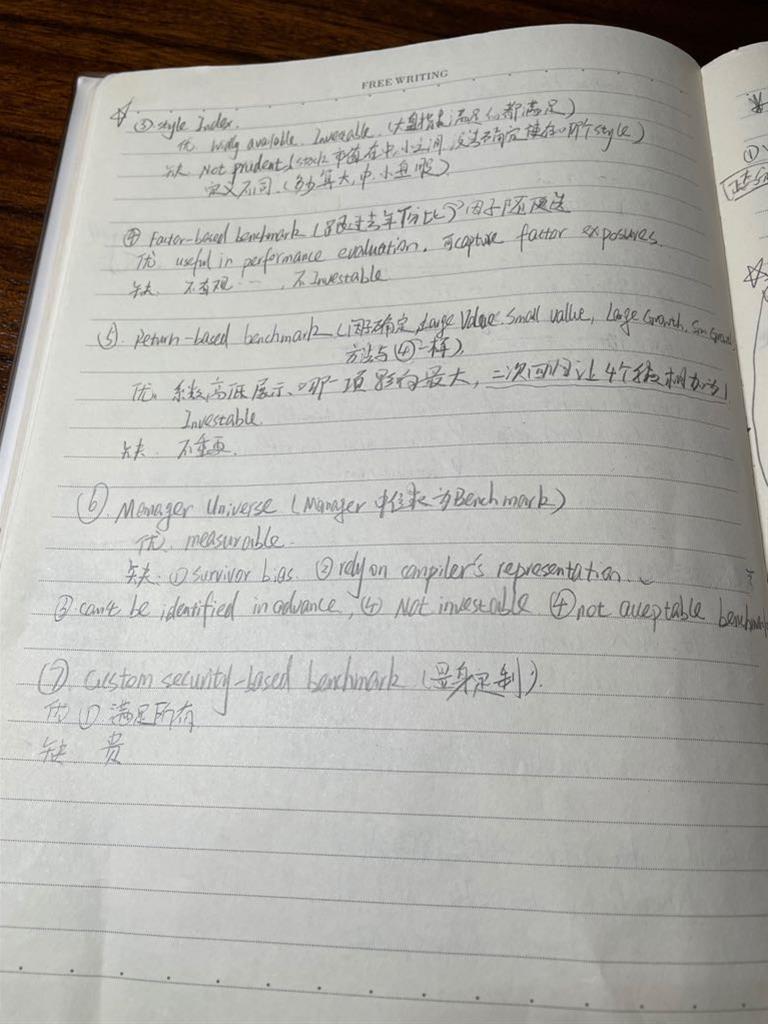 FREE WRITING
☆ ③ style Index.
优 widly available. Investable. (大盘指数满足的都满足)
缺 Not prudent (stock 市值在中,小之间,没法确定类在哪个style)
定义不同.(多少算大,中,小盘股)
④ Factor-based benchmark (
优 useful in performance evaluation. 可capture factor exposures.
缺 不直观 … , 不Investable
⑤. Return-based benchmark (确定 Large Value. Small value, Large Growth, Sm Growth
方法与④一样).
优. 系数高低展示哪一项影向最大, 二次回归让4个 相加为1
Investable.
缺.
⑥ Manager Universe (Manager 中位数为Benchmark)
优. measurable.
缺: ① survivor bias. ② rely on compiler's representation.
③ can't be identified in advance, ④ Not investable ④ not acceptable benchmark
⑦ Custom security-based benchmark (量身定制).
优 ① 满足所有
缺 贵
①